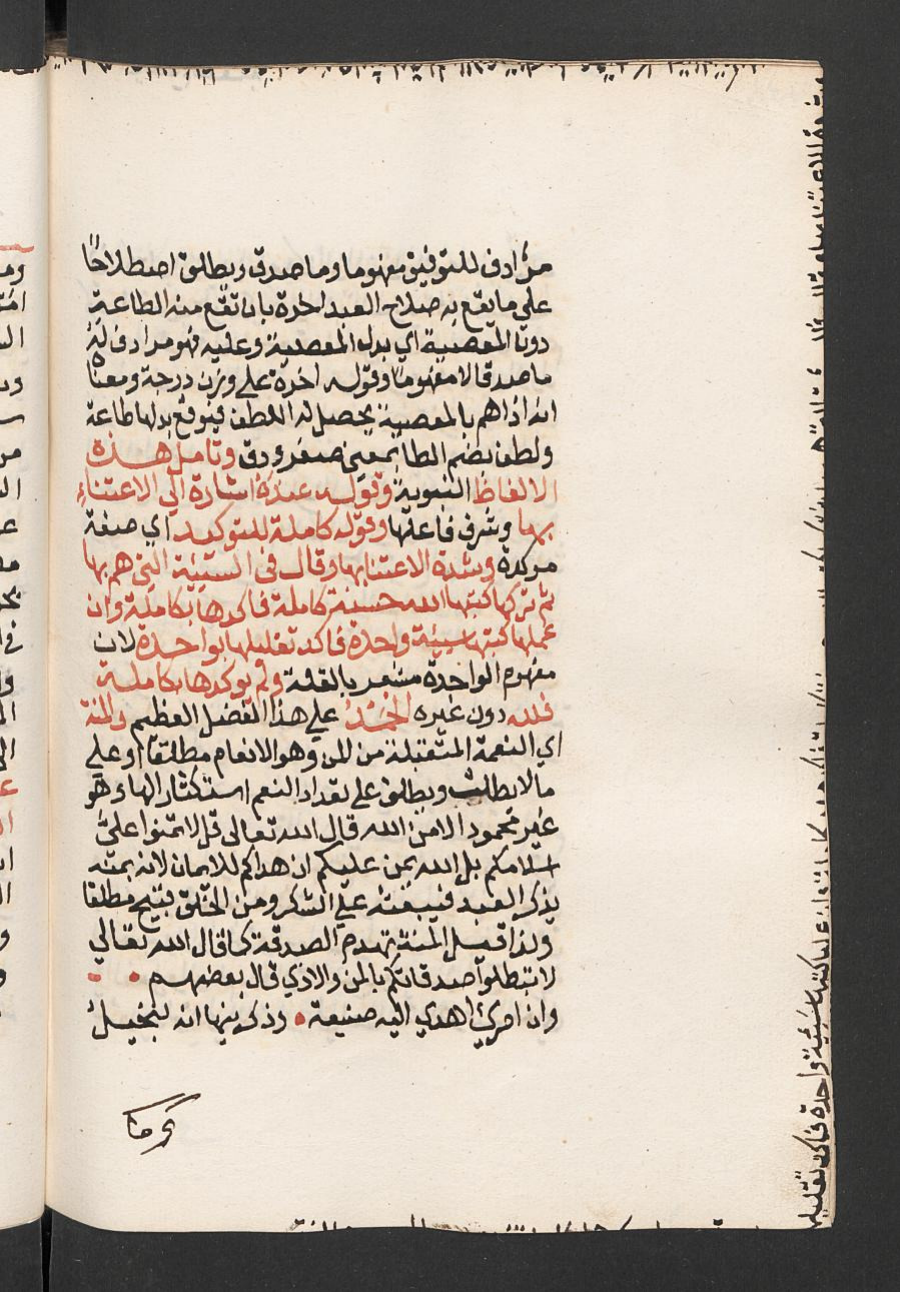 مرادف للتوفيق مفهوما وما صدق ويطلق اصطلاحًا
علي ما يقع به صلاح العبد اخرة بان تقع منه الطاعة
دون المعصية اي بدل المعصية وعليه فهو مرادف له
ما صدقا لا مفهوما وقوله اخرة علي وزن درجة ومعناه
انه اذا هم بالمعصية يحصل له اللطف فيوقع بدلها طاعة
ولطف بضم الطا بمعني صغر ودق وتامل هذه
الالفاظ النبوية وقوله عنده اشارة الي الاعتناء
بها وشرف فاعلها وقوله كاملة للتوكيد اي صفة
موكدة وشدة الاعتنا بها وقال في السيئة التي هم بها
ثم تركها كتبها الله حسنة كاملة فاكدها بكاملة وان
عملها كتبها سيئة واحدة فاكد تقليلها بواحدة لان
مفهوم الواحدة مشعر بالقلة ولم يوكدها بكاملة
فلله دون غيره الحَمْدُ علي هذا الفضل العظيم والمنة
اي النعمة المثقلة من المن وهو الانعام مطلقا او علي
ما لا يطلب ويطلق علي تعداد النعم استكثار الها وهو
غير محمود الا من الله قال الله تعالى قل لا تمنوا عليّ
اسلامكم بل الله يمن عليكم ان هداكم للايمان لانه بمنه
يذكر العبد فيبعثه علي الشكر ومن الخلق قبيح مطلقا
ولذا قيل المنة تهدم الصدقة كما قال الله تعالي
لا تبطلوا صدقاتكم بالمن والاذي قال بعضهم
وان امرئ اهدي اليه صنيعة • وذكرنيها انه لبخيل